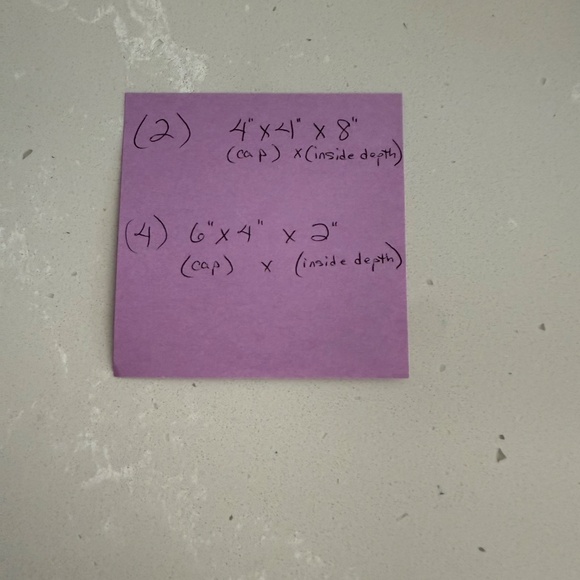 (2) 4" x 4" x 8"
(cap) x (inside depth)
(4) 6" x 4" x 2"
(cap) x (inside depth)